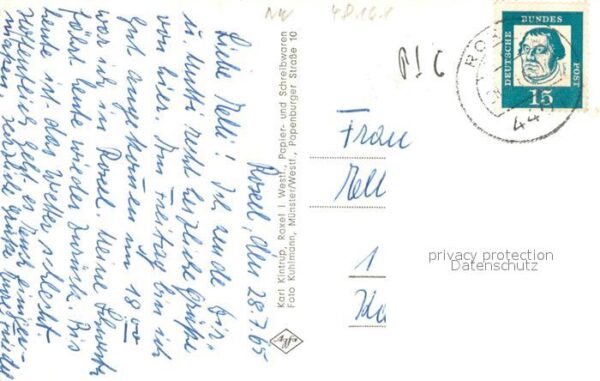 Roxel, den 28.7.65
Liebe Nelli! Ich sende Dir
u. Mutti recht herzliche Grüße
von hier. Am Freitag bin ich
gut angekommen um 18 00
war ich Roxel. Meine Schwester
fährt heute wieder zurück. Bis
heute ist das Wetter schlecht.
hoffe es geht
machen herzliche Grüße
Karl Kintrup, Roxel i Westf., Papier- und Schreibwaren
Foto Kuhlmann, Münster/Westf., Papenburger Straße 10
Agfa
NW 48161
P1C
Frau
Nell
1
DEUTSCHE BUNDES POST
15
RO
44
privacy protection
Datenschutz